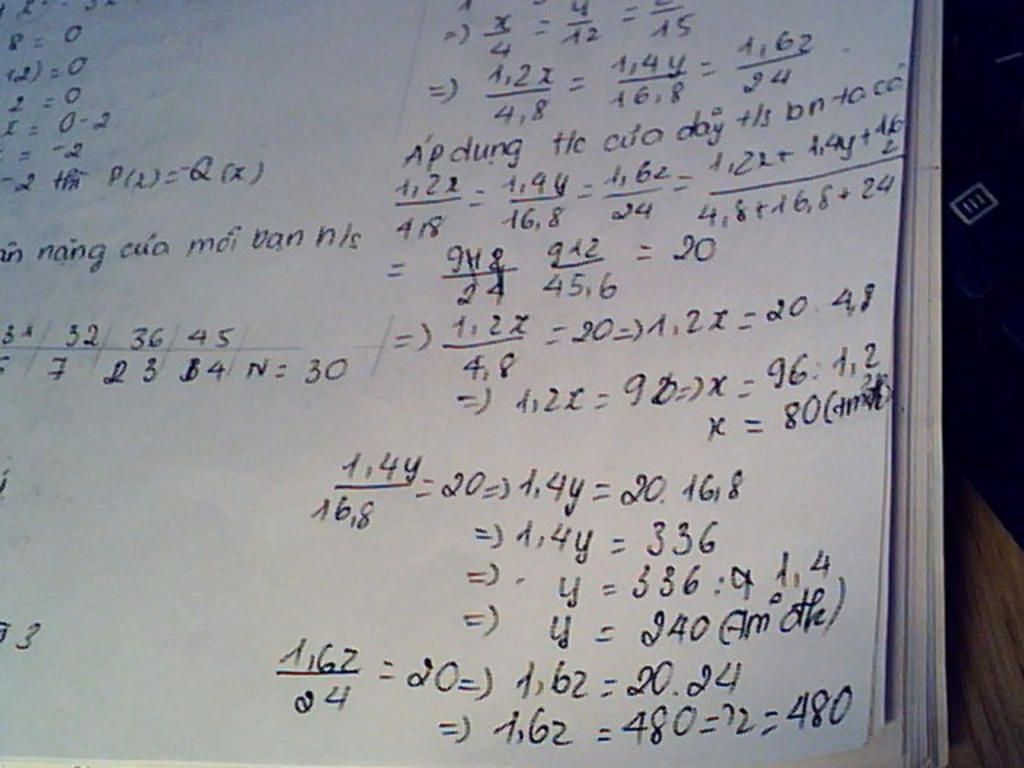 8 = 0
12) = 0
2 = 0
x = 0-2
= -2
-2 thì P(x) = -Q(x)
nặng của mỗi bạn h/s
31 32 36 45
7 23 84 N = 30
3
=) x/4 = y/12 = z/15
=) 1,2x/4,8 = 1,4y/16,8 = 1,6z/24
Áp dụng t/c của dãy t/s bn ta có
1,2x/4,8 = 1,4y/16,8 = 1,6z/24 = 1,2x + 1,4y + 1,6z/4,8 + 16,8 + 24
= 912/45,6 = 20
=) 1,2x/4,8 = 20 =) 1,2x = 20 . 4,8
=) 1,2x = 96 =) x = 96 : 1,2
x = 80 (tmđk)
1,4y/16,8 = 20 =) 1,4y = 20. 16,8
=) 1,4y = 336
=) y = 336 : 1,4
=) y = 240 (tm đk)
1,6z/24 = 20 =) 1,6z = 20.24
=) 1,6z = 480 =) z = 480